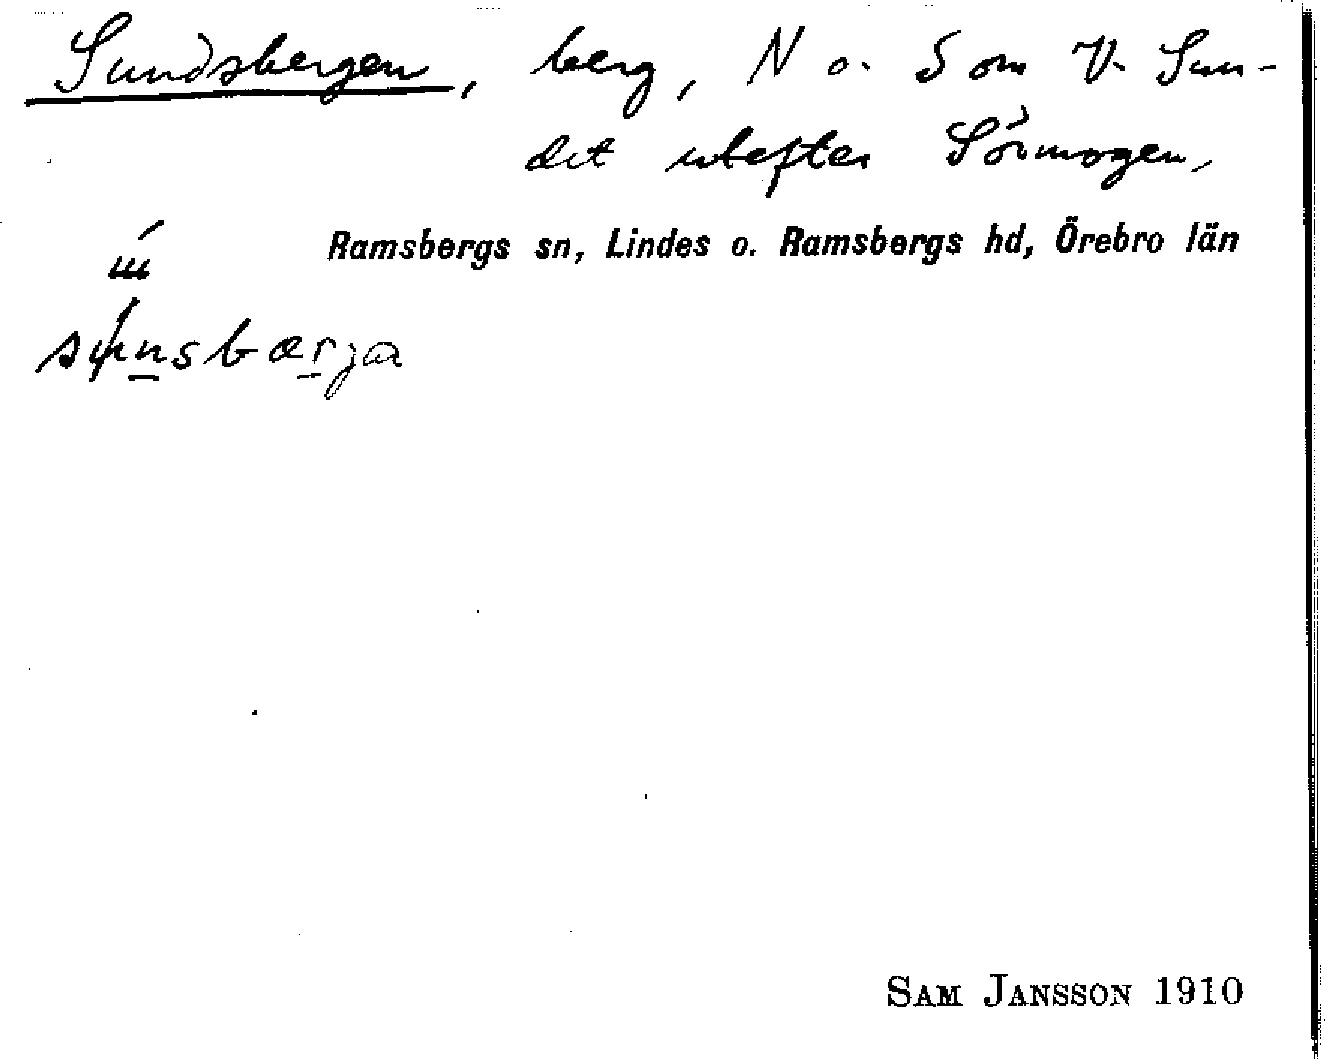 Sundsbergen, berg, N o. S om V. Sun-
det utefter Sörmogen,
Ramsbergs sn, Lindes o. Ramsbergs hd, Örebro län
SAM JANSSON 1910